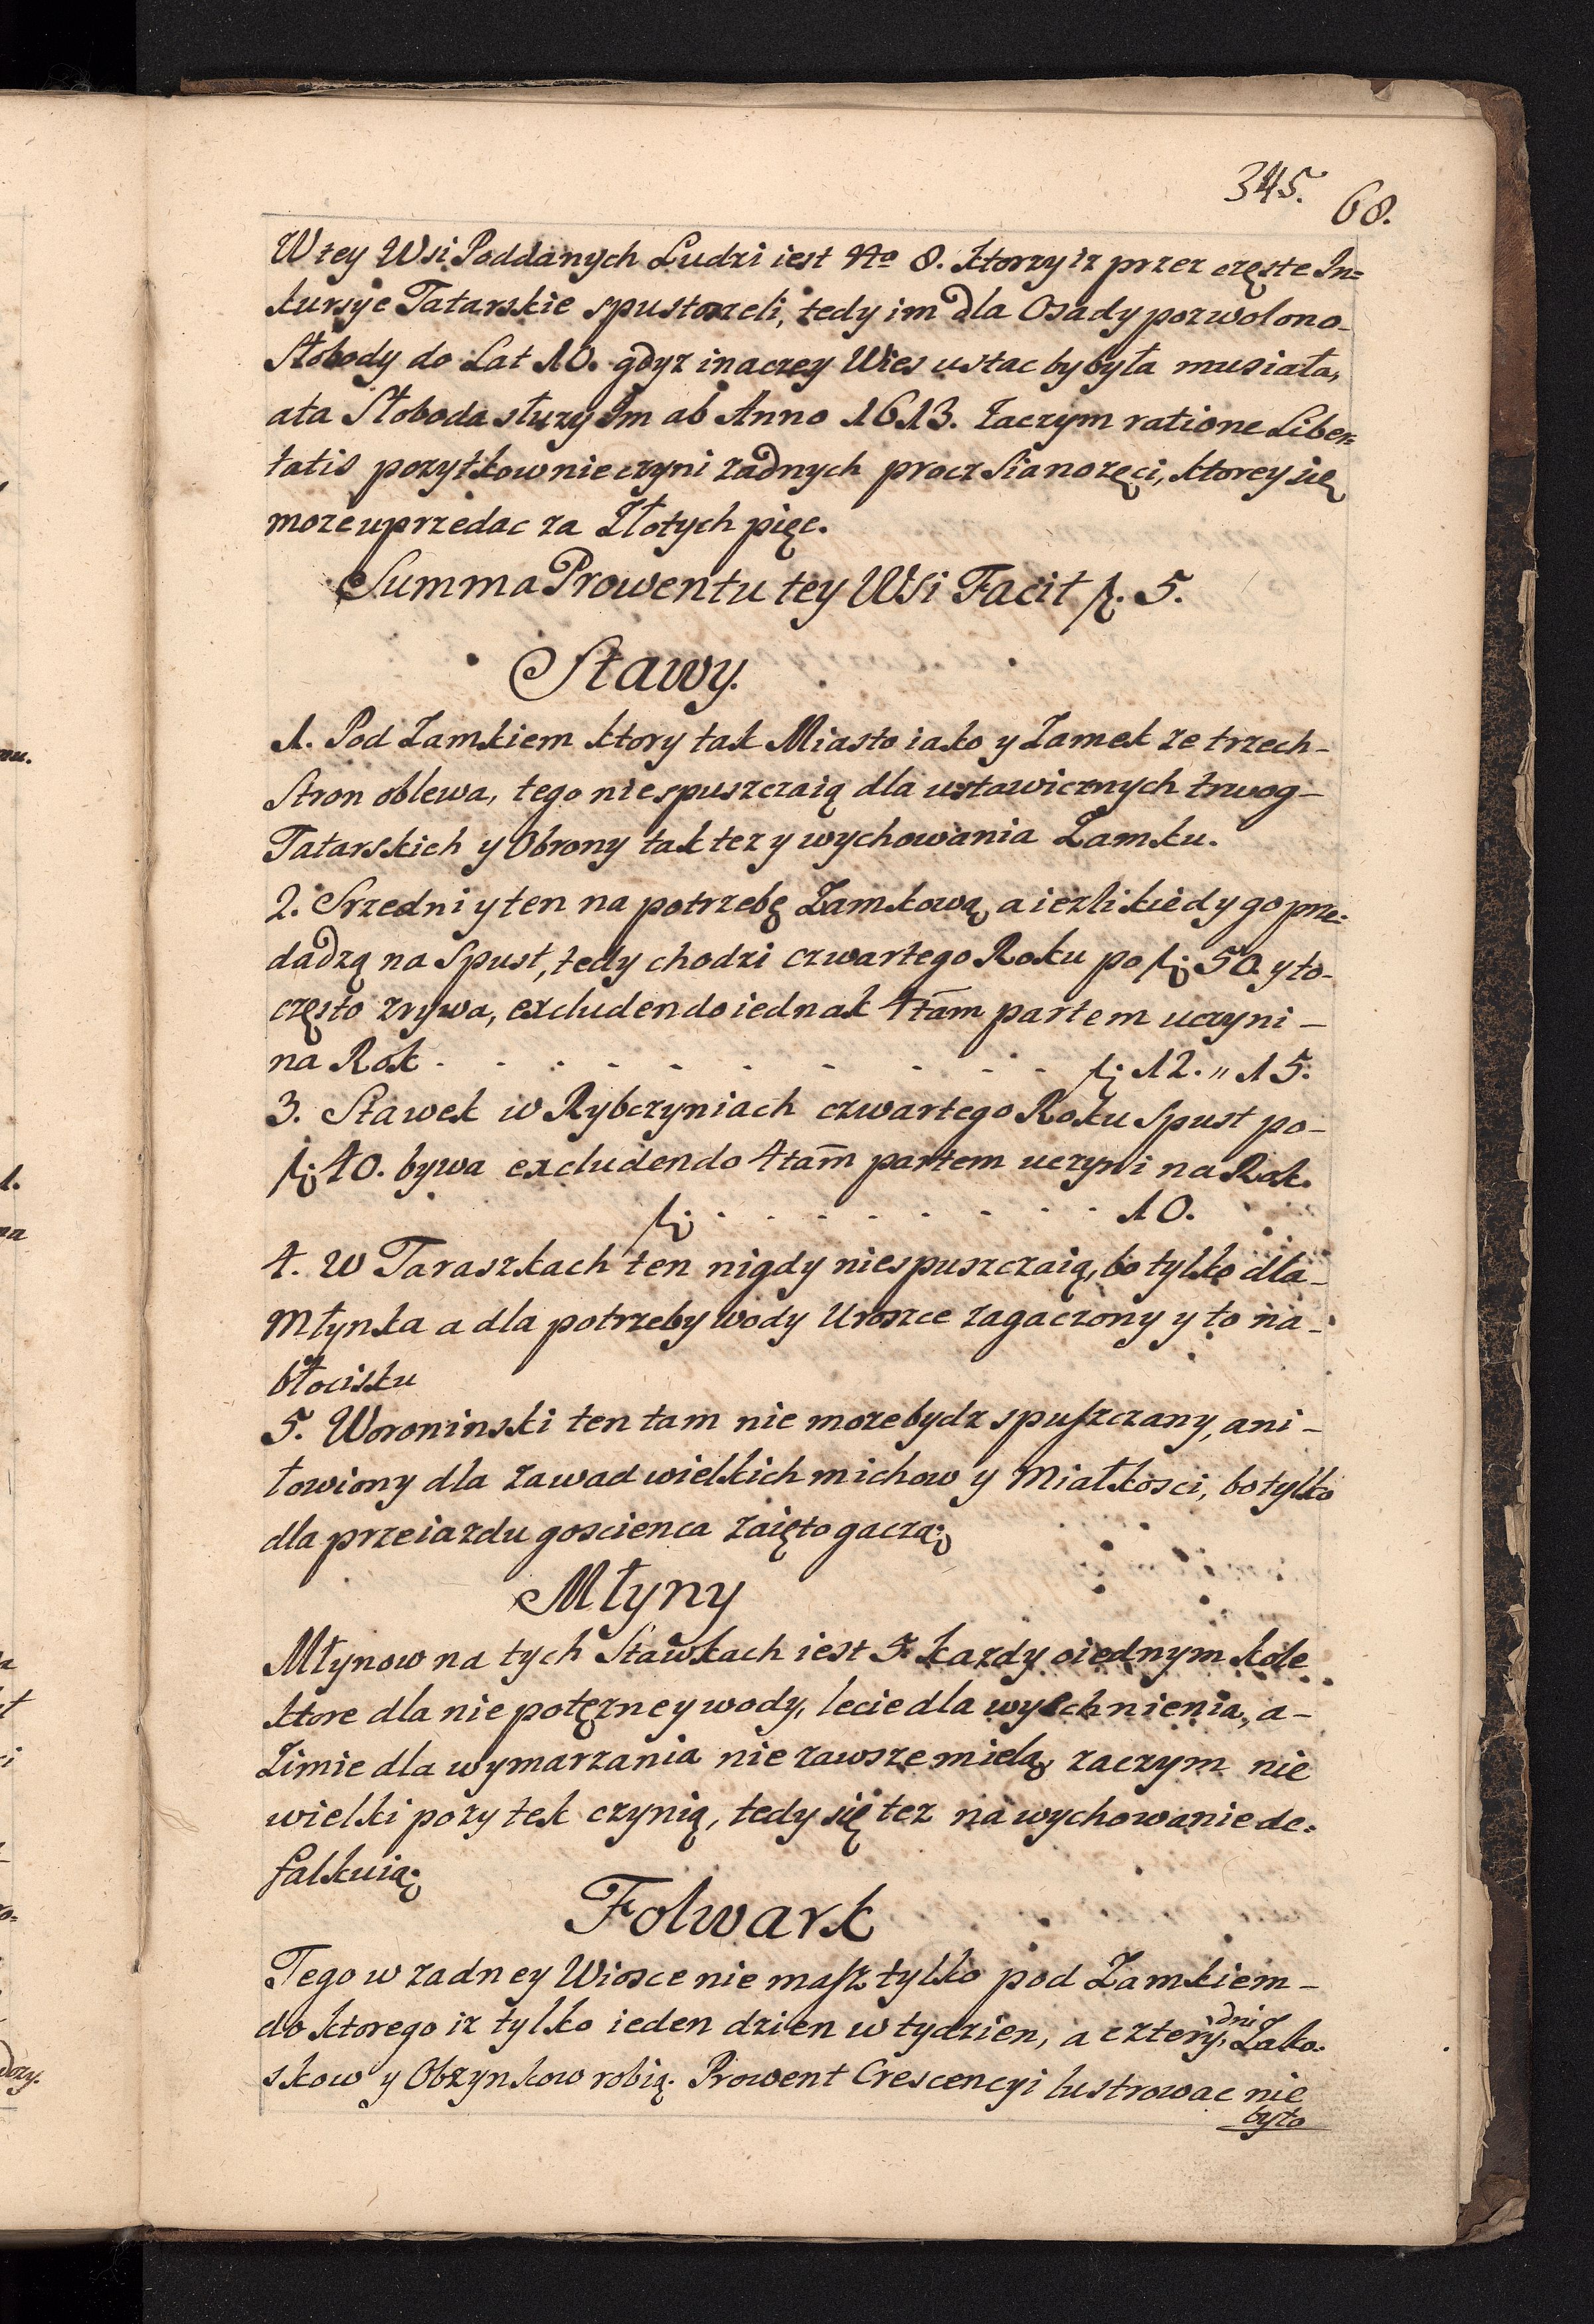 345. 68.
W tey Wsi Poddanych Ludzi iest No 8. ktorzy iz przez częste In=
kursye Tatarskie spustoszeli, tedy im dla Osady pozwolono
Słobody do Lat 10. gdyz inaczey Wies ustac by była musiała,
a ta Słoboda słuzy Im ab Anno 1613. Zaczym ratione Liber=
tatis pozytkow nie czyni zadnych procz Sianozęci, ktorey się
moze uprzedac za Złotych pięc.
Summa Prowentu tey Wsi Facit f. 5.
Stawy.
1. Pod Zamkiem ktory tak Miasto iako y Zamek ze trzech
Stron oblewa, tego nie spuszczaią dla ustawicznych trwog
Tatarskich y Obrony tak tez y wychowania Zamku.
2. Srzedni y ten na potrzebę Zamkową, a iezli kiedy go prze=
dadzą na Spust, tedy chodzi czwartego Roku po f: 50. y to
często zrywa, excludendo iednak 4tam partem uczyni
na Rok . . . . . . . . . . f: 12. " 15.
3. Stawek w Rybczyniach czwartego Roku Spust po
f: 40. bywa excludendo 4tam partem uczyni na Rok.
f: . . . . . . . . 10.
4. w Taraszkach ten nigdy nie spuszczaią, bo tylko dla
Młynka a dla potrzeby wody Uroszce zagaczony y to na
błocisku
5. Woroninski ten tam nie moze bydz spuszczany, ani
łowiony dla zawad wielkich michow y Miałkosci, bo tylko
dla przeiazdu goscienca zaięto gaczą:
Młyny
Młynow na tych Stawkach iest 5. kazdy o iednym kole
ktore dla nie potęzney wody, lecie dla wyschnienia, a
Zimie dla wymarzania nie zawsze mielą, zaczym nie
wielki pozytek czynią, tedy się tez na wychowanie de=
falkuią:
Folwark
Tego w zadney Wiosce nie masz tylko pod Zamkiem
do ktorego iz tylko ieden dzien w tydzien, a cztery dni Zako=
skow y Obzynkow robią. Prowent Crescencyi lustrowac nie
było